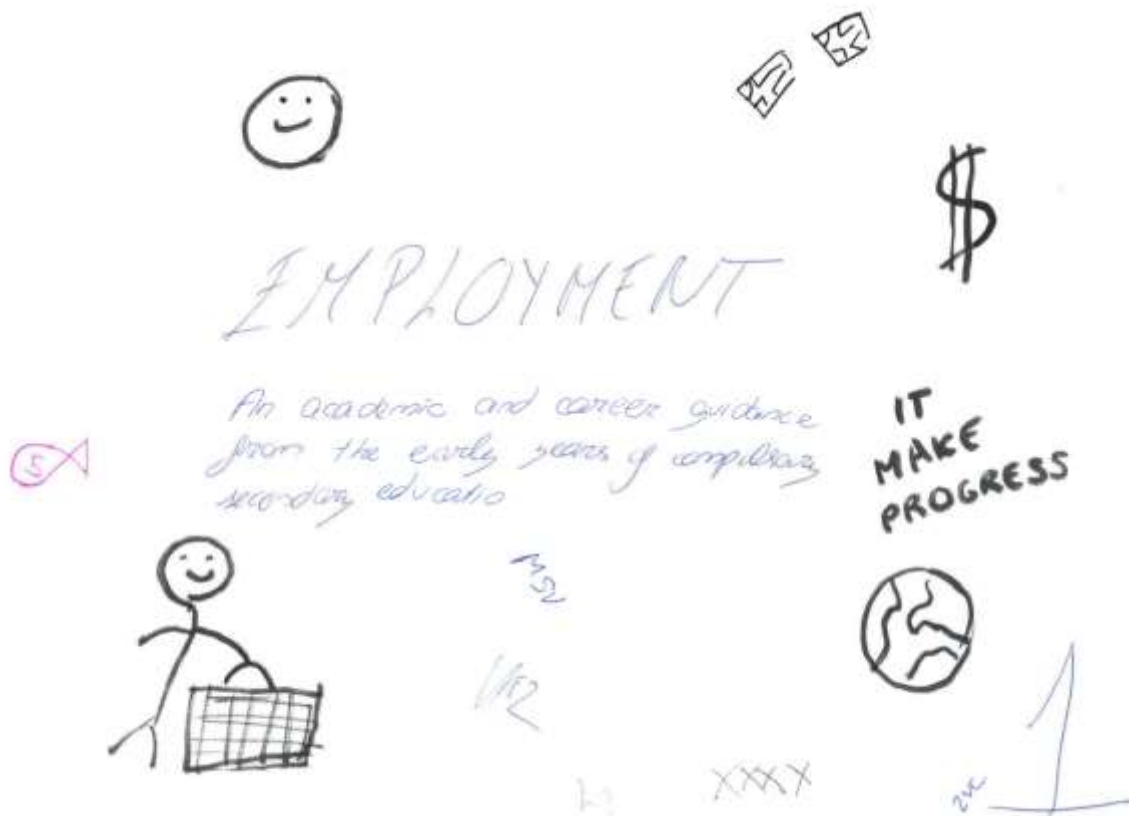 $
EMPLOYMENT
An academic and career guidance
from the early years of compulsary
secondary educatio
IT
MAKE
PROGRESS
5
XXXX
1